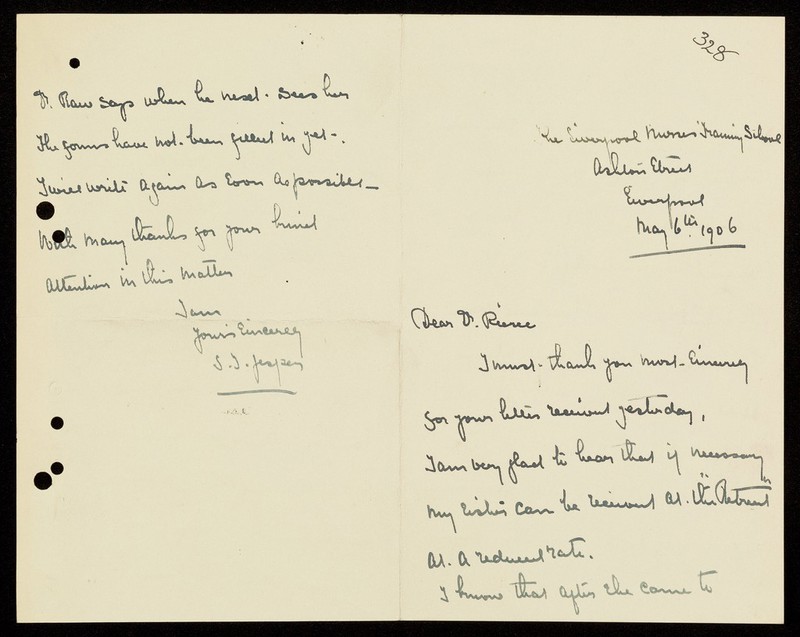 328
The Liverpool Nurses Training School
Ashton Street
Liverpool
May 6th 1906
Dear Dr. Pierce
I must thank you most sincerely
for your letter received yesterday,
I am very glad to hear that if necessary
my sister can be received at "the Retreat"
at a reduced rate.
I know that after she came to
Dr. Raw says when he next sees her
The forms have not been filled in yet.
I will write again as soon as possible
With many thanks for your kind
attention in this matter
I am
Yours sincerely
S. J. Jesper